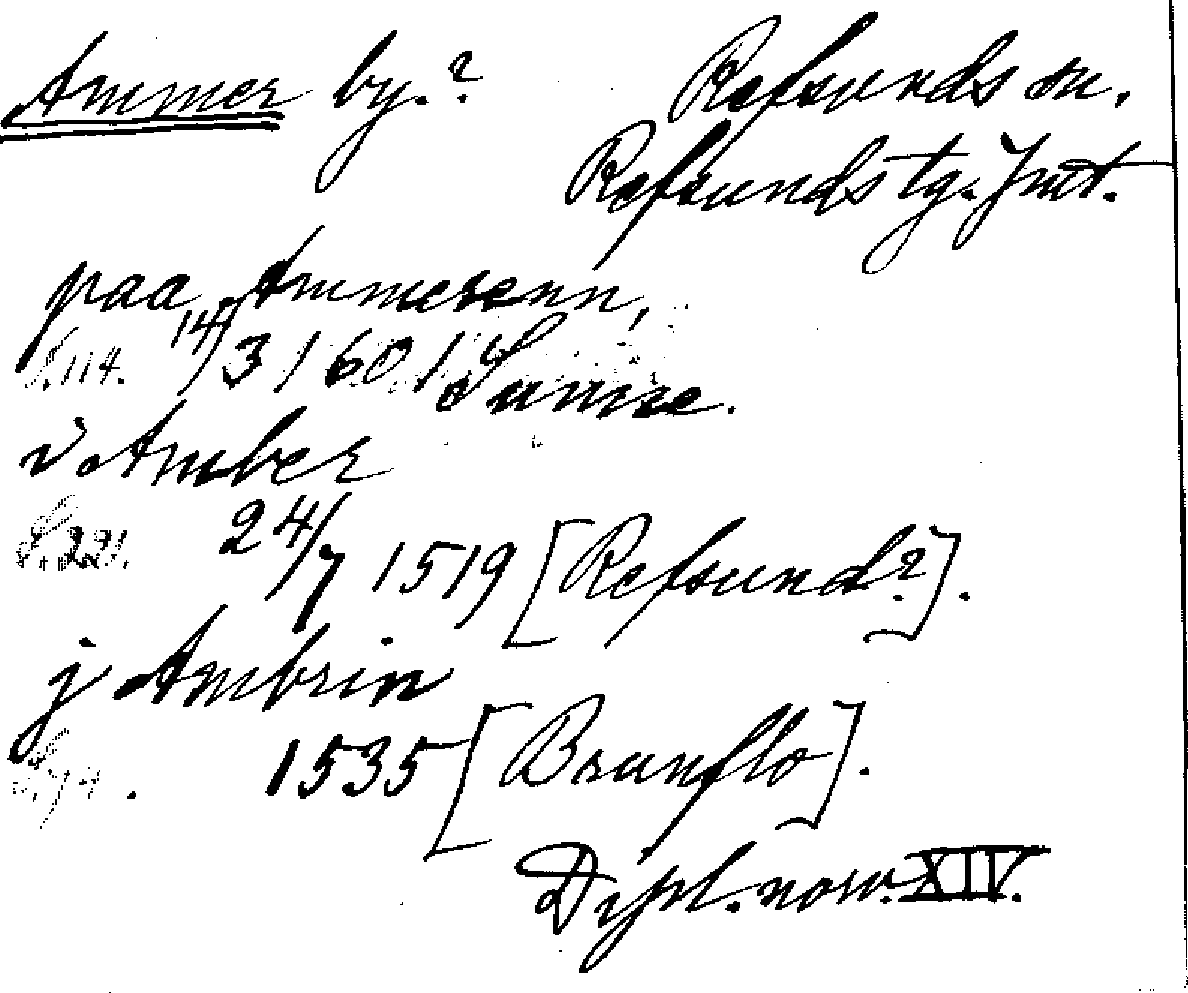 Ammer by.? Refsunds sn.
Refsunds tg. Jmt.
paa Ammerenn,
S. 114. 14/3 1601 Sunne.
i Amber
S. 221. 24/7 1519 [Refsund?].
j Ambrin
1535 [Brunflo].
Dipl. norv. XIV.